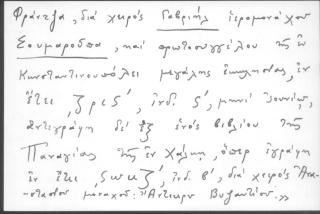 Φραντζᾶ, διὰ χειρὸς Γαβριὴλ ἱερομονάχου
Σουμαρούπα, καὶ πρωτοσυγγέλου τῆς ἐν
Κωνσταντινουπόλει μεγάλης ἐκκλησίας, ἐν
ἔτει ͵ζρϛʹ, ἰνδ. ϛʹ, μηνὶ Ἰουνίῳ,
ἀντεγράφη δὲ ἐξ ἑνὸς βιβλίου τῆς
Παναγίας τῆς ἐν Χάλκῃ, ὅπερ ἐγράφη
ἐν ἔτει ͵ϛωκζʹ, ἰνδ. βʹ, διὰ χειρὸς Ἀνα-
στασίου μοναχοῦ. Βυζαντίου.»